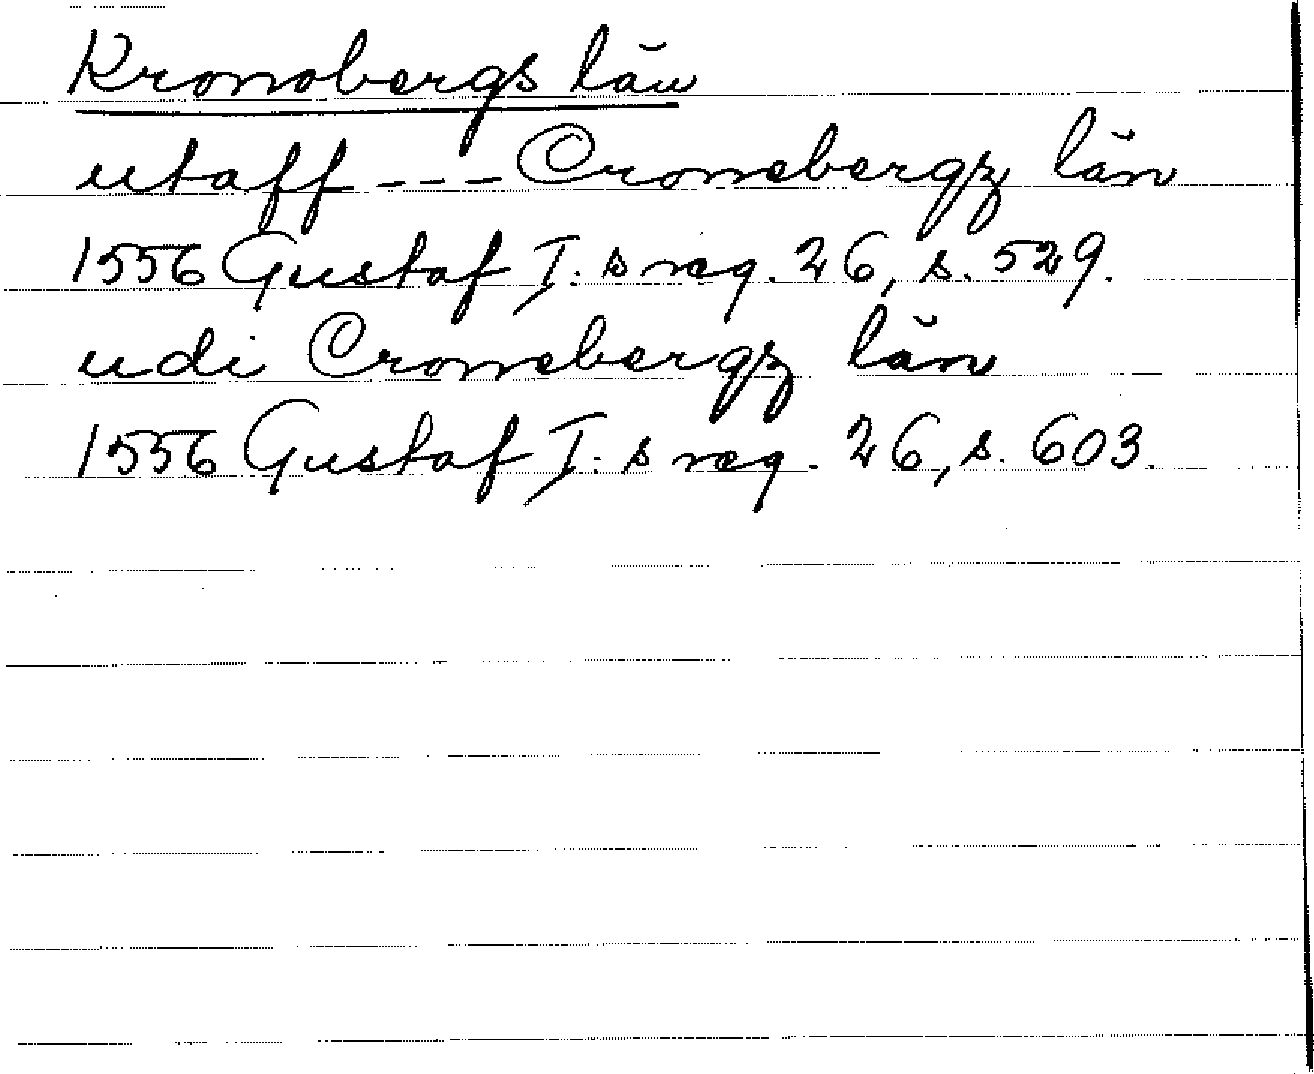 Kronobergs län
utaff --- Cronebergz län
1556 Gustaf I:s reg. 26, s. 529.
udi Cronebergz län
1556 Gustaf I:s reg. 26, s. 603.